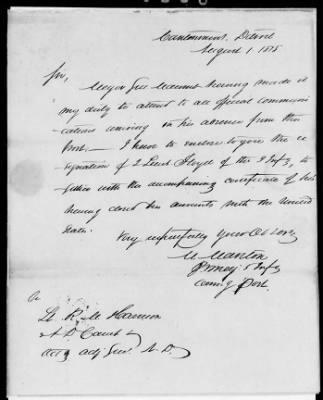 Cantonment, Detroit
August 1, 1818
Sir,
Major Gen Macomb having made it
my duty to attend to all official communi
cations arriving in his absence from this
Post,— I have to enclose to you the re
signation of 2 Lieut Floyd of the 3 Infy, to
gether with the accompanying certificate of his
having closed his accounts with the United
States.
Very respectfully your Ob Serv,
Infy
comdg Post.
To
Lt R. M Harrison
A. D Camp &
actg adj Gen. N. D.